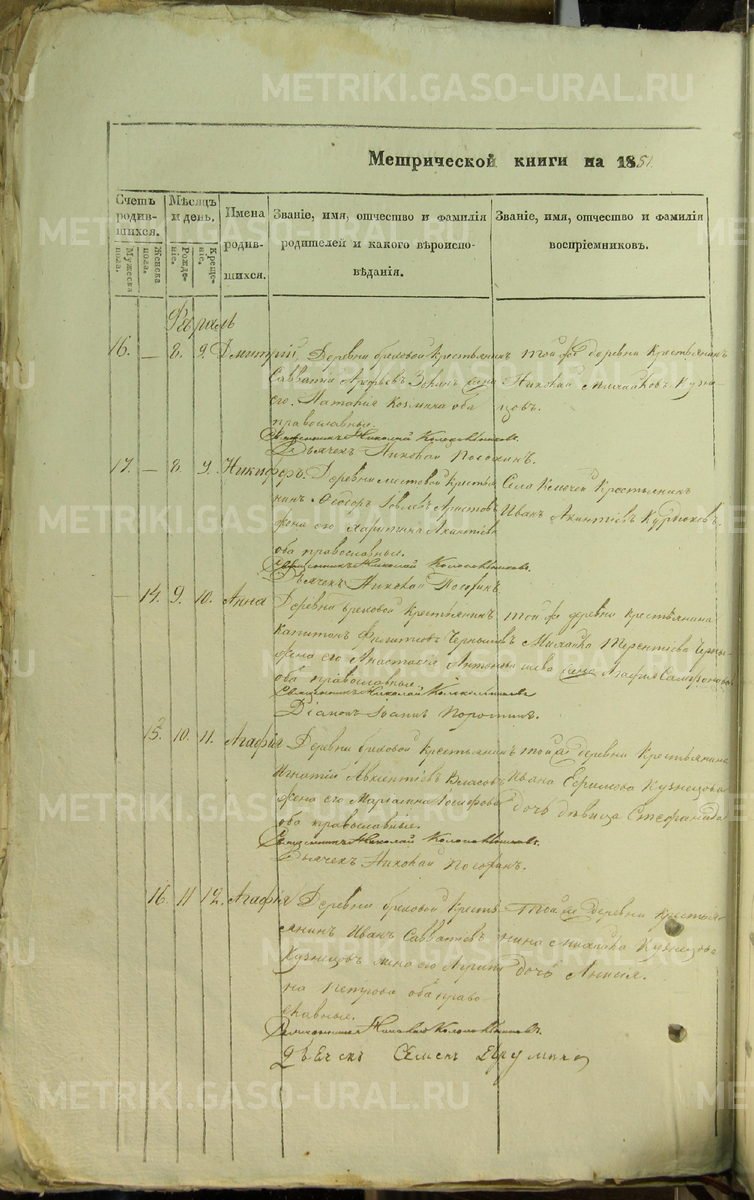 METRIKI.GASO-URAL.RU
Метрической книги на 1851.
Счетъ родив-шихся.
Мужеска пола.
Женска пола.
Мѣсяцъ и день.
Рожде-ніе.
Креще-ніе.
Имена родив-шихся.
Званіе, имя, отчество и фамилія родителей и какого вѣроиспо-вѣданія.
Званіе, имя, отчество и фамилія воспріемниковъ.
Февраль
16. — 8. 9. Дмитрій, Деревни бреховой крестьянинъ
Савватій жена
его Наталія Козмина оба
православные.
Священникъ Николай Колокольниковъ.
Дьячекъ Николай
Той же деревни крестьянинъ
Николай Михайловъ Кузне-
цовъ.
17. — 8. 9. Никифоръ. Деревни крестья-
нинъ Ѳеодоръ
жена его Харитина
оба православные.
Священникъ Николай Колокольниковъ.
Дьячекъ Николай
Села крестьянинъ
Иванъ
— 14. 9. 10. Анна Деревни бреховой крестьянинъ
Капитонъ Филиповъ Чернышевъ
жена его Анастасія Антонова
оба православные.
Священникъ Николай Колокольниковъ
Діаконъ Іоаннъ
Той же деревни крестьянина
Михайла Терентьева Черны-
шева жена Агафія
15. 10. 11. Агафія Деревни бреховой крестьянинъ
Игнатій Власовъ
жена его Маріамна Іосифова
оба православные.
Священникъ Николай Колокольниковъ.
Дьячекъ Николай
Той же деревни крестьянина
Ивана Ефимова Кузнецова
дочь дѣвица Стефанида
16. 11 12. Агафія Деревни бреховой кресть-
янинъ Иванъ Савватіевъ
Кузнецовъ жена его Агрипи-
на Петрова оба право-
славные.
Священникъ Николай Колокольниковъ.
Дьечекъ Семенъ
Той же деревни крестья-
нина Михайла Кузнецова
дочь